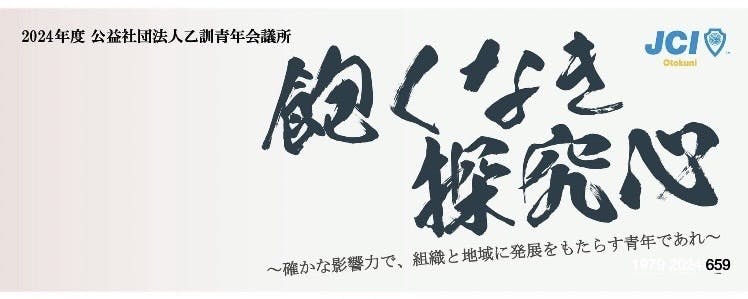 2024年度 公益社団法人乙訓青年会議所
JCI
Otokuni
飽くなき
探究心
～確かな影響力で、組織と地域に発展をもたらす青年であれ～
1979 2024 659